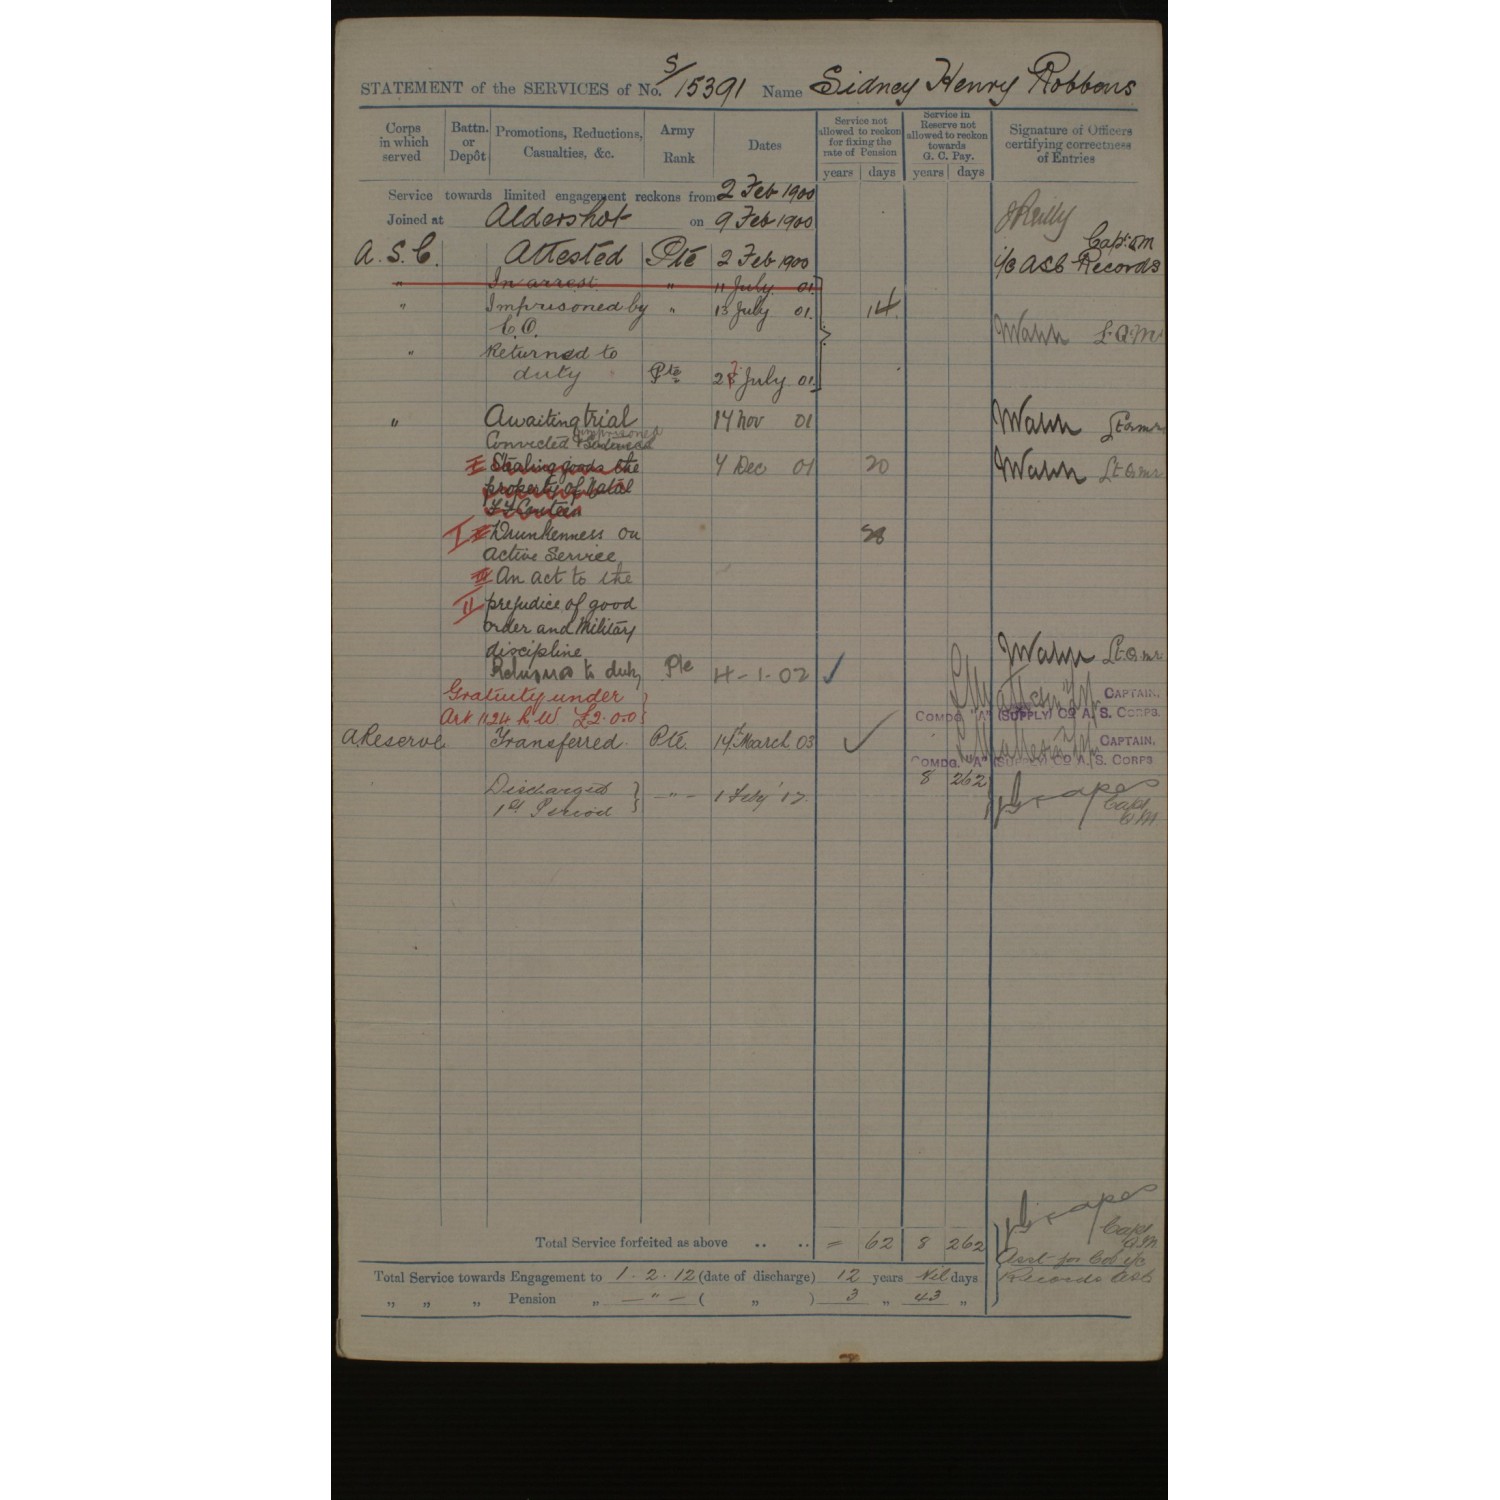 STATEMENT of the SERVICES of No. S/15391 Name Sidney Henry Robbins
Corps in which served
Battn. or Depôt
Promotions, Reductions, Casualties, &c.
Army Rank
Dates
Service not allowed to reckon for fixing the rate of Pension
years days
Service in Reserve not allowed to reckon towards G. C. Pay.
years days
Signature of Officers certifying correctness of Entries
Service towards limited engagement reckons from 2 Feb 1900
Joined at Aldershot on 9 Feb 1900
A.S.C. Attested Pte 2 Feb 1900
Capt: QM
i/c ASC Records
" In arrest " 11 July 01
" Imprisoned by " 13 July 01. 14
C.O.
Wahn Lt QMr
" Returned to
duty Pte 27 July 01
" Awaiting trial 14 Nov 01 Wahn Lt QMr
Convicted & imprisoned
I Stealing goods the 4 Dec 01 20 Wahn Lt QMr
property of Natal
F F Canteen
I II Drunkenness on 28
Active Service
III An act to the
II prejudice of good
order and Military
discipline Wahn Lt. QMr
Returned to duty Pte 4-1-02
Gratuity under
Art 1124 R W £2.0.0
CAPTAIN.
COMDG. "A" (SUPPLY) CO A. S. CORPS.
A Reserve Transferred Pte. 14th March 03
CAPTAIN.
COMDG. "A" (SUPPLY) CO A. S. CORPS
8 262
Discharged
1st Period - " - 1 Feby 12.
Capt
QM
Capt
QM
Total Service forfeited as above .. .. = 62 8 262
Asst for Col i/c
Records ASC
Total Service towards Engagement to 1.2.12 (date of discharge) 12 years Nil days
" " " Pension " — " — ( " ) 3 " 43 "